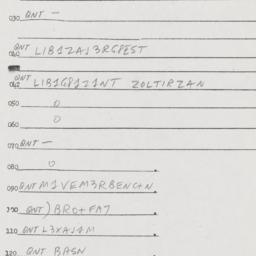 030 QNT —
040 QNT LIB1ZAJ3RGPEST
042 QNT LIB1GP1I1NT ZOLTIRZAN
050 0
060 0
070 QNT —
080 0
090 QNT M1VEM3RBENC+N
100 QNT ) BRO+FA7
110 QNT L3XAJ4M
120 QNT BASN